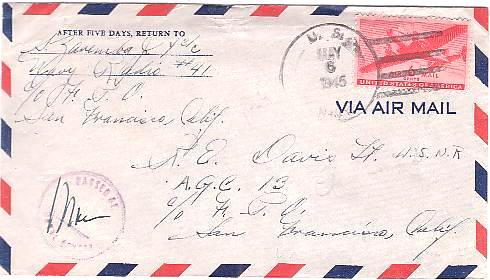 AFTER FIVE DAYS, RETURN TO
S. Zaremba Y 3/c
Navy Radio #41
c/o F. P. O.
San Francisco, Calif.
U. S.
MAY
6
1945
MAIL
CENTS
UNITED STATES OF AMERICA
VIA AIR MAIL
R. E. Davis Lt. U.S.N.R
A.G.C. 13
c/o F. P. O.
San Francisco, Calif.
PASSED BY